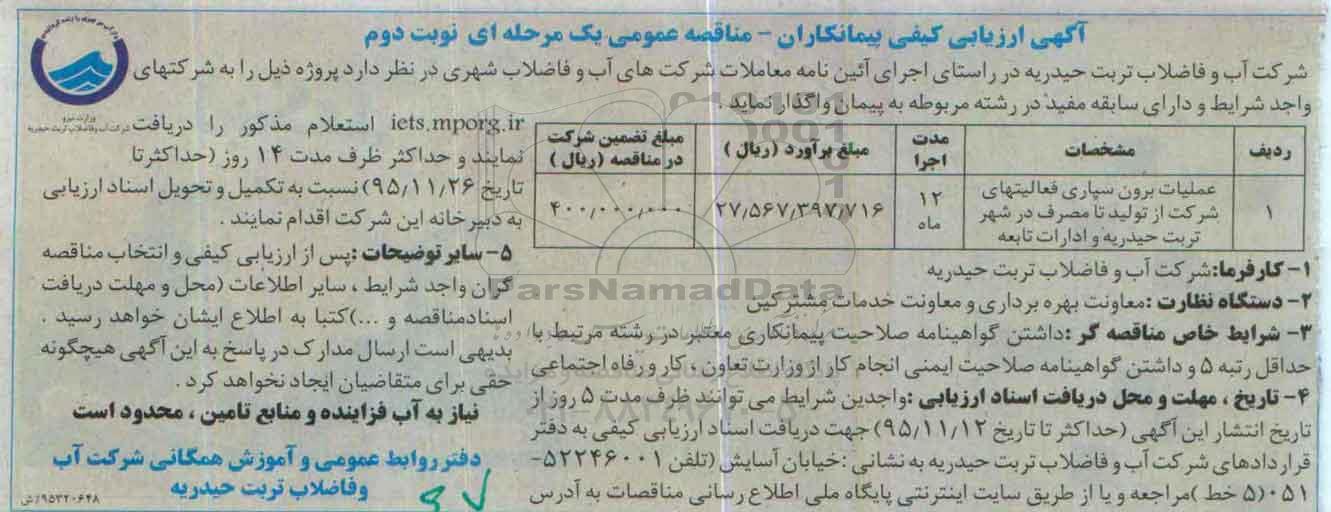 آگهی ارزیابی کیفی پیمانکاران - مناقصه عمومی یک مرحله ای نوبت دوم
شرکت آب و فاضلاب تربت حیدریه در راستای اجرای آئین نامه معاملات شرکت های آب و فاضلاب شهری در نظر دارد پروژه ذیل را به شرکتهای
واجد شرایط و دارای سابقه مفید در رشته مربوطه به پیمان واگذار نماید .
ردیف
مشخصات
مدت اجرا
مبلغ برآورد (ریال )
مبلغ تضمین شرکت در مناقصه (ریال )
۱
عملیات برون سپاری فعالیتهای
شرکت از تولید تا مصرف در شهر
تربت حیدریه و ادارات تابعه
۱۲ ماه
۲۷٫۵۶۷٫۳۹۷٫۷۱۶
۴۰۰٫۰۰۰٫۰۰۰
۱- کارفرما:شرکت آب و فاضلاب تربت حیدریه
۲- دستگاه نظارت :معاونت بهره برداری و معاونت خدمات مشترکین
۳- شرایط خاص مناقصه گر :داشتن گواهینامه صلاحیت پیمانکاری معتبر در رشته مرتبط با
حداقل رتبه ۵ و داشتن گواهینامه صلاحیت ایمنی انجام کار از وزارت تعاون ، کار و رفاه اجتماعی
۴- تاریخ ، مهلت و محل دریافت اسناد ارزیابی :واجدین شرایط می توانند ظرف مدت ۵ روز از
تاریخ انتشار این آگهی (حداکثر تا تاریخ ۹۵٫۱۱٫۱۲) جهت دریافت اسناد ارزیابی کیفی به دفتر
قراردادهای شرکت آب و فاضلاب تربت حیدریه به نشانی :خیابان آسایش (تلفن ۵۲۲۴۶۰۰۱-
۰۵۱(۵ خط )مراجعه و یا از طریق سایت اینترنتی پایگاه ملی اطلاع رسانی مناقصات به آدرس
iets.mporg.ir استعلام مذکور را دریافت
نمایند و حداکثر ظرف مدت ۱۴ روز (حداکثرتا
تاریخ ۹۵٫۱۱٫۲۶) نسبت به تکمیل و تحویل اسناد ارزیابی
به دبیرخانه این شرکت اقدام نمایند .
۵- سایر توضیحات :پس از ارزیابی کیفی و انتخاب مناقصه
گران واجد شرایط ، سایر اطلاعات (محل و مهلت دریافت
اسنادمناقصه و ...)کتبا به اطلاع ایشان خواهد رسید .
بدیهی است ارسال مدارک در پاسخ به این آگهی هیچگونه
حقی برای متقاضیان ایجاد نخواهد کرد .
نیاز به آب فزاینده و منابع تامین ، محدود است
دفتر روابط عمومی و آموزش همگانی شرکت آب
وفاضلاب تربت حیدریه
۹۵۳۲۰۶۴۸/ش
وزارت نیرو
شرکت آب وفاضلاب تربت حیدریه
ParsNamadData